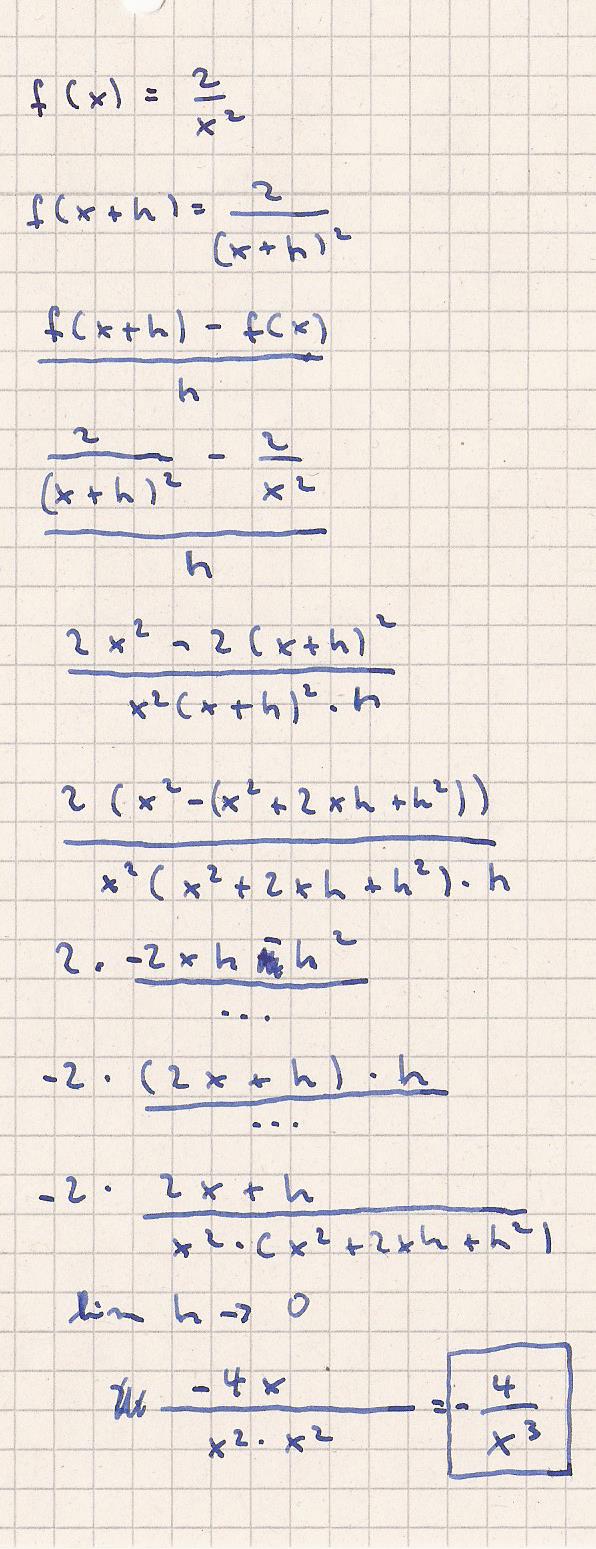 f(x) = 2/x²
f(x+h) = 2/(x+h)²
f(x+h) - f(x)
h
2/(x+h)² - 2/x²
h
2x² - 2(x+h)²
x²(x+h)² · h
2(x² - (x² + 2xh + h²))
x²(x² + 2xh + h²) · h
2 · -2xh - h²
...
-2 · (2x + h) · h
...
-2 · 2x + h
x² · (x² + 2xh + h²)
lim h → 0
-4x / x² · x² = - 4/x³